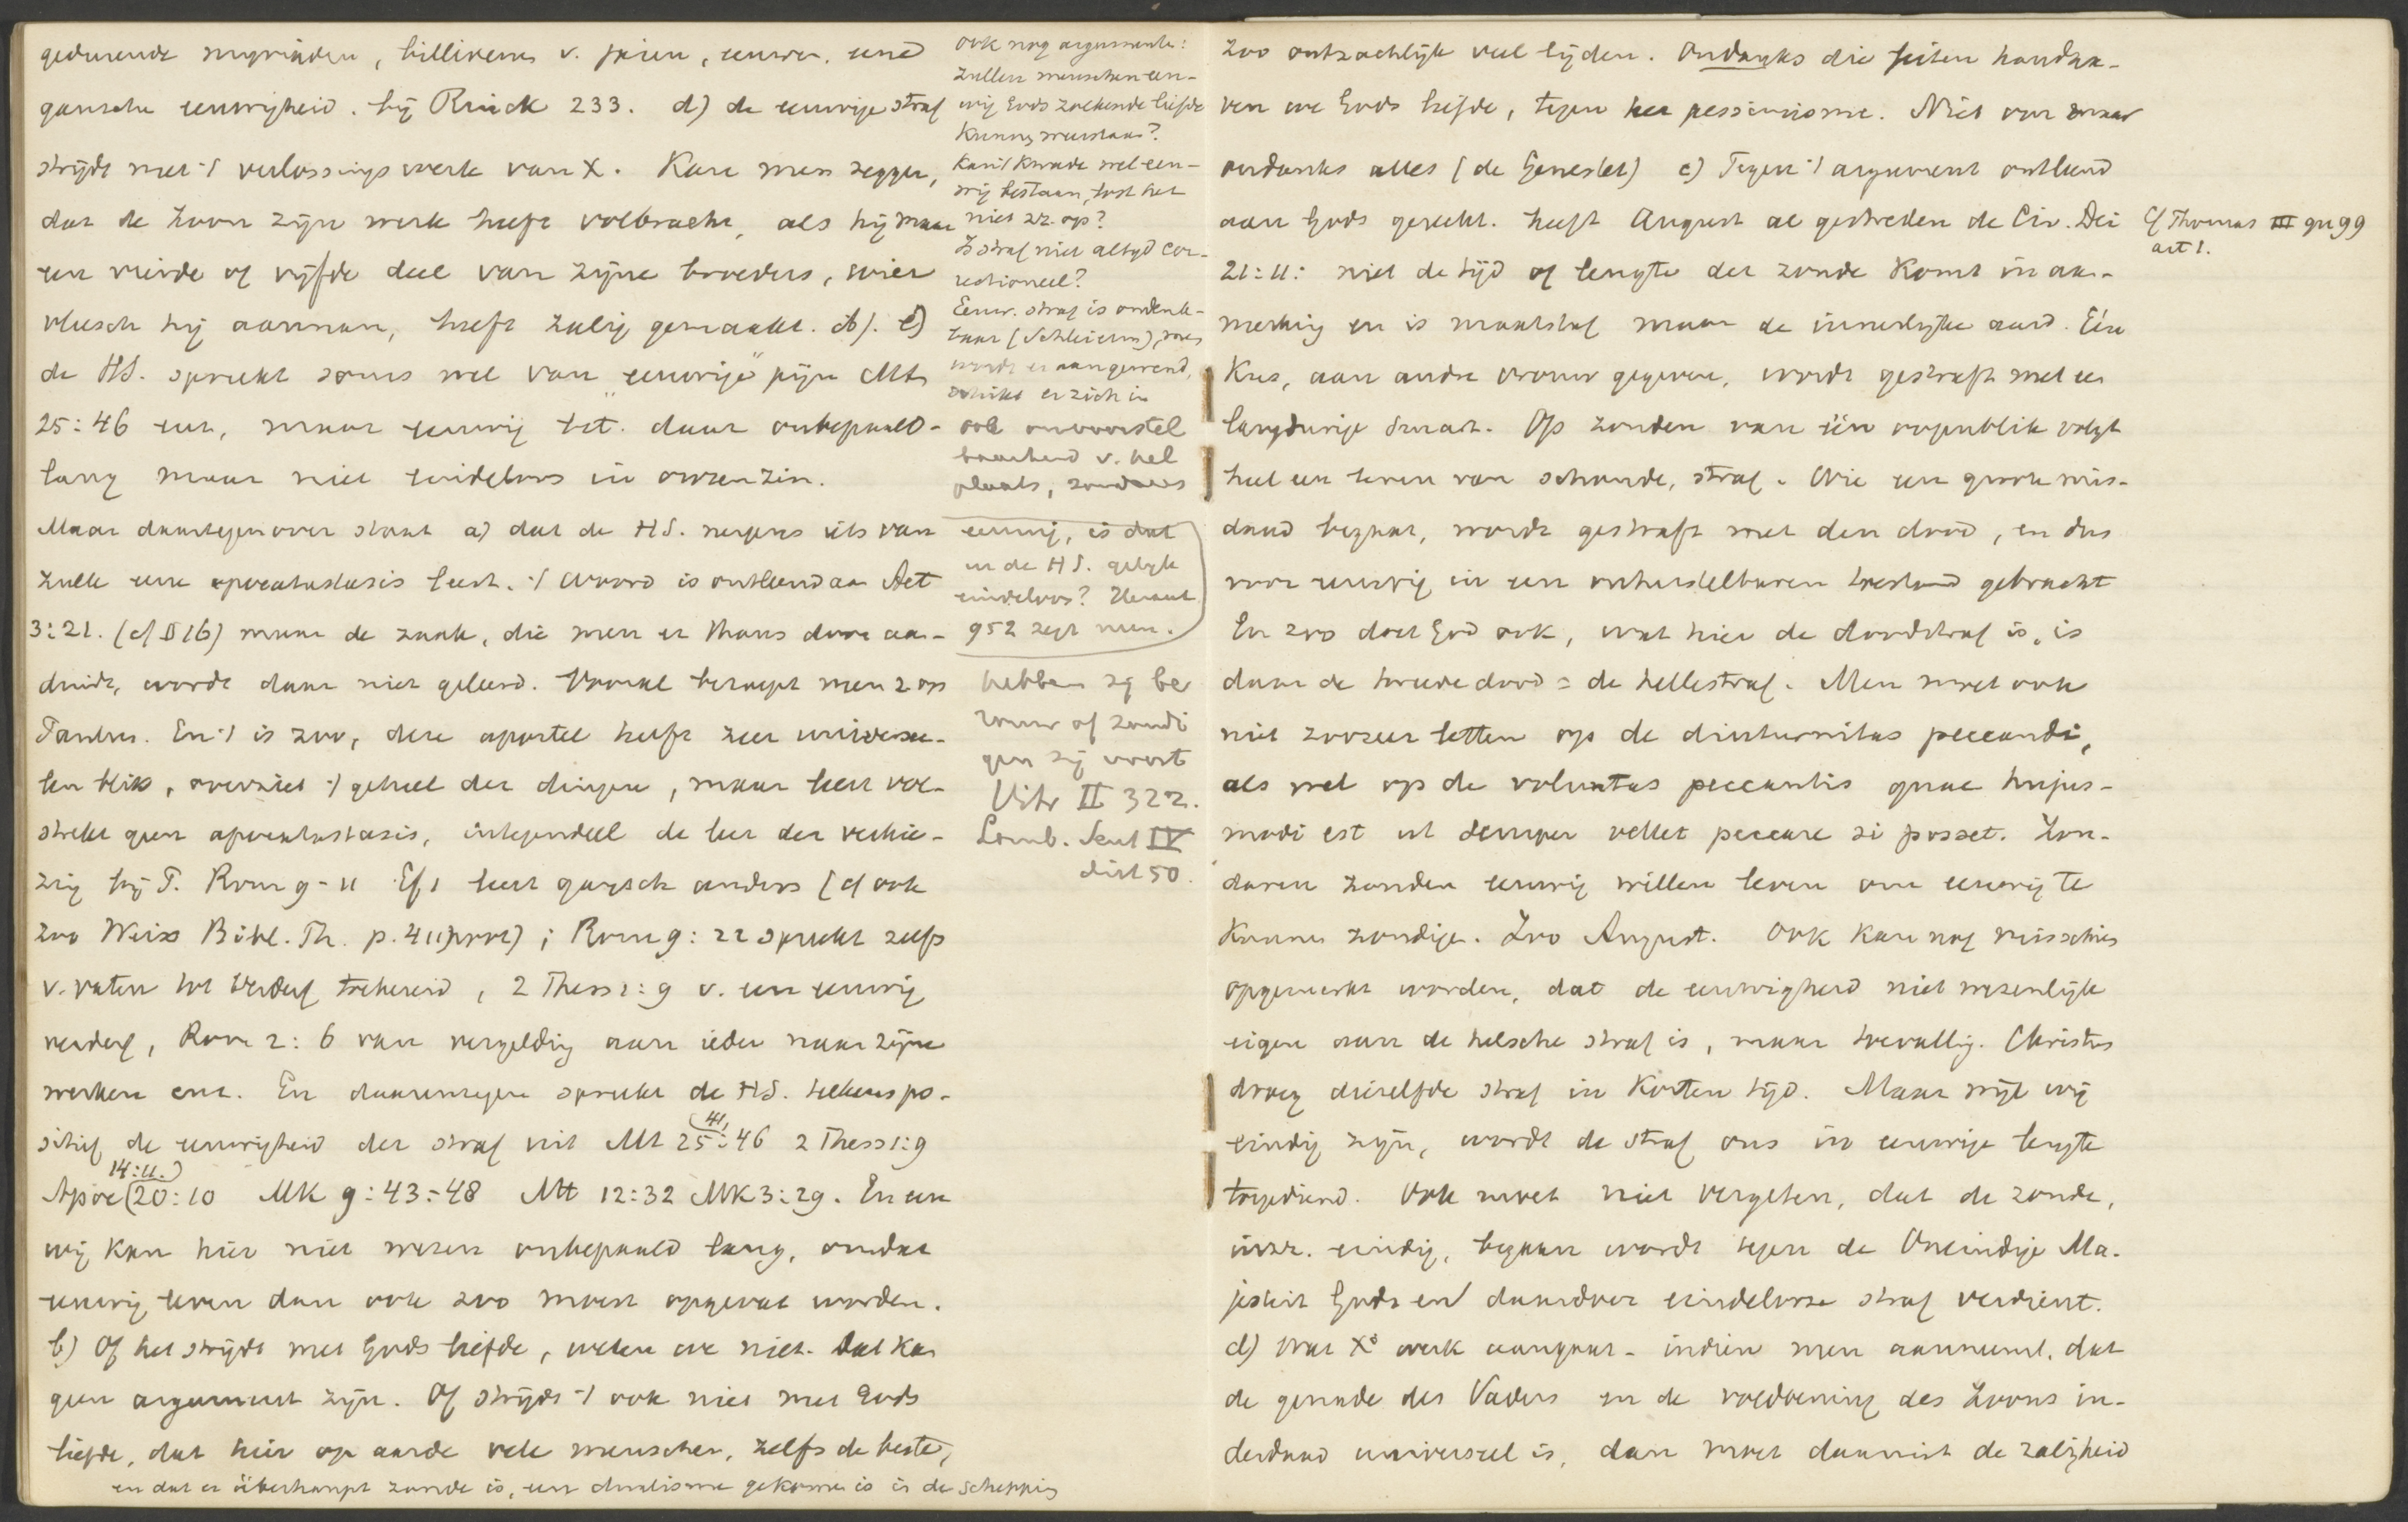 gedurende myriaden, billioenen v. jaren, eeuwen, eene
gansche eeuwigheid. bij Rinck 233. d) de eeuwige straf
strijdt met 't verlossingswerk van X. Kan men zeggen,
dat de Zoon zijn werk heeft volbracht, als hij maar
een vierde of vijfde deel van zijne broeders, wier
vleesch hij aannam, heeft zalig gemaakt. e)
de HS. spreekt soms wel van "eeuwige" pijn Mt
25:46 enz, maar eeuwig bet. daar onbepaald-
lang maar niet eindeloos in onzen zin.
Maar daartegenover staat a) dat de HS. nergens iets van
zulk eene apocatastasis leert. 't Woord is ontleend aan Act
3:21. (cf § 16) maar de zaak, die men er thans door aan-
duidt, wordt daar niet geleerd. Vooral beroept men z op
Paulus. En 't is zoo, deze apostel heeft zeer universee-
len blik, overziet 't geheel der dingen, maar leert vol-
strekt geen apocatastasis, integendeel de leer der verkie-
zing bij P. Rom 9-11 Ef 1 leert gansch anders (cf ook
zoo Weiss Bibl. Th. p. 411) ; Rom 9:22 spreekt zelfs
v. vaten tot verderf toebereid, 2 Thess 1:9 v. een eeuwig
verderf, Rom 2:6 van vergelding aan ieder naar zijne
werken enz. En daarentegen spreekt de HS. telkens po-
sitief de eeuwigheid der straf uit Mt 25:(41,)46 2 Thess 1:9
Apoc (14:11.) 20:10 Mk 9:43-48 Mt 12:32 Mk 3:29. En eeu
wig kan hier niet wezen onbepaald lang, omdat
eeuwig leven dan ook zoo moest opgevat worden.
b) Of het strijdt met Gods liefde, weten we niet. Dat kan
geen argument zijn. Of strijdt 't ook niet met Gods
liefde, dat hier op aarde vele menschen, zelfs de beste,
en dat er überhaupt zonde is, een dualisme gekomen is in de schepping
ook nog argumenten:
zullen menschen eeu-
wig Gods zoekende liefde
kunnen weerstaan?
Kan 't kwade wel eeu-
wig bestaan, lost het
niet zz. op?
Is straf niet altijd cor-
rectioneel?
Eeuw. straf is ondenk-
baar (Schleierm), men
wordt er aan gewend,
schikt er zich in
ook onvoorstel
baarheid v. hel
plaats, zondaars
eeuwig, is dat
in de HS. gelijk
eindeloos? Heraut
952 zegt neen.
hebben zij be
rouw of zondi
gen zij voort
Vitr II 322.
Lomb. Sent IV
dist 50.
zoo ontzachlijk veel lijden. Ondanks die feiten handha-
ven we Gods liefde, tegen het pessimisme. Niet om maar
ondanks alles (de Genestet) c) Tegen 't argument ontleend
aan Gods gerecht. heeft August al gestreden de Civ. Dei
21:11: niet de tijd of lengte der zonde komt in aan-
merking en is maatstaf maar de innerlijke aard. Eén
kus, aan andre vrouw gegeven, wordt gestraft met een
langdurige smart. Op zonden van één oogenblik volgt
heel een leven van schande, straf. Wie een groote mis-
daad begaat, wordt gestraft met den dood, en dus
voor eeuwig in een onherstelbaren toestand gebracht
En zoo doet God ook, wat hier de doodstraf is, is
daar de tweede dood = de hellestraf. Men moet ook
niet zoozeer letten op de diuturnitas peccandi,
als wel op de voluntas peccantis quae hujus-
modi est ut semper vellet peccare si posset. Zon-
daren zouden eeuwig willen leven om eeuwig te
kunnen zondigen. Zoo August. Ook kan nog misschien
opgemerkt worden, dat de eeuwigheid niet wezenlijk
eigen aan de helsche straf is, maar toevallig. Christus
droeg diezelfde straf in korten tijd. Maar wijl wij
eindig zijn, wordt de straf ons in eeuwige lengte
toegediend. Ook moet niet vergeten, dat de zonde,
inzz. eindig, begaan wordt tegen de Oneindige Ma-
jesteit Gods en daardoor eindelooze straf verdient.
d) Wat Xs werk aangaat - indien men aanneemt, dat
de genade des Vaders en de voldoening des Zoons in-
derdaad universeel is, dan moet daaruit de zaligheid
Cf Thomas III qu 99
art 1.